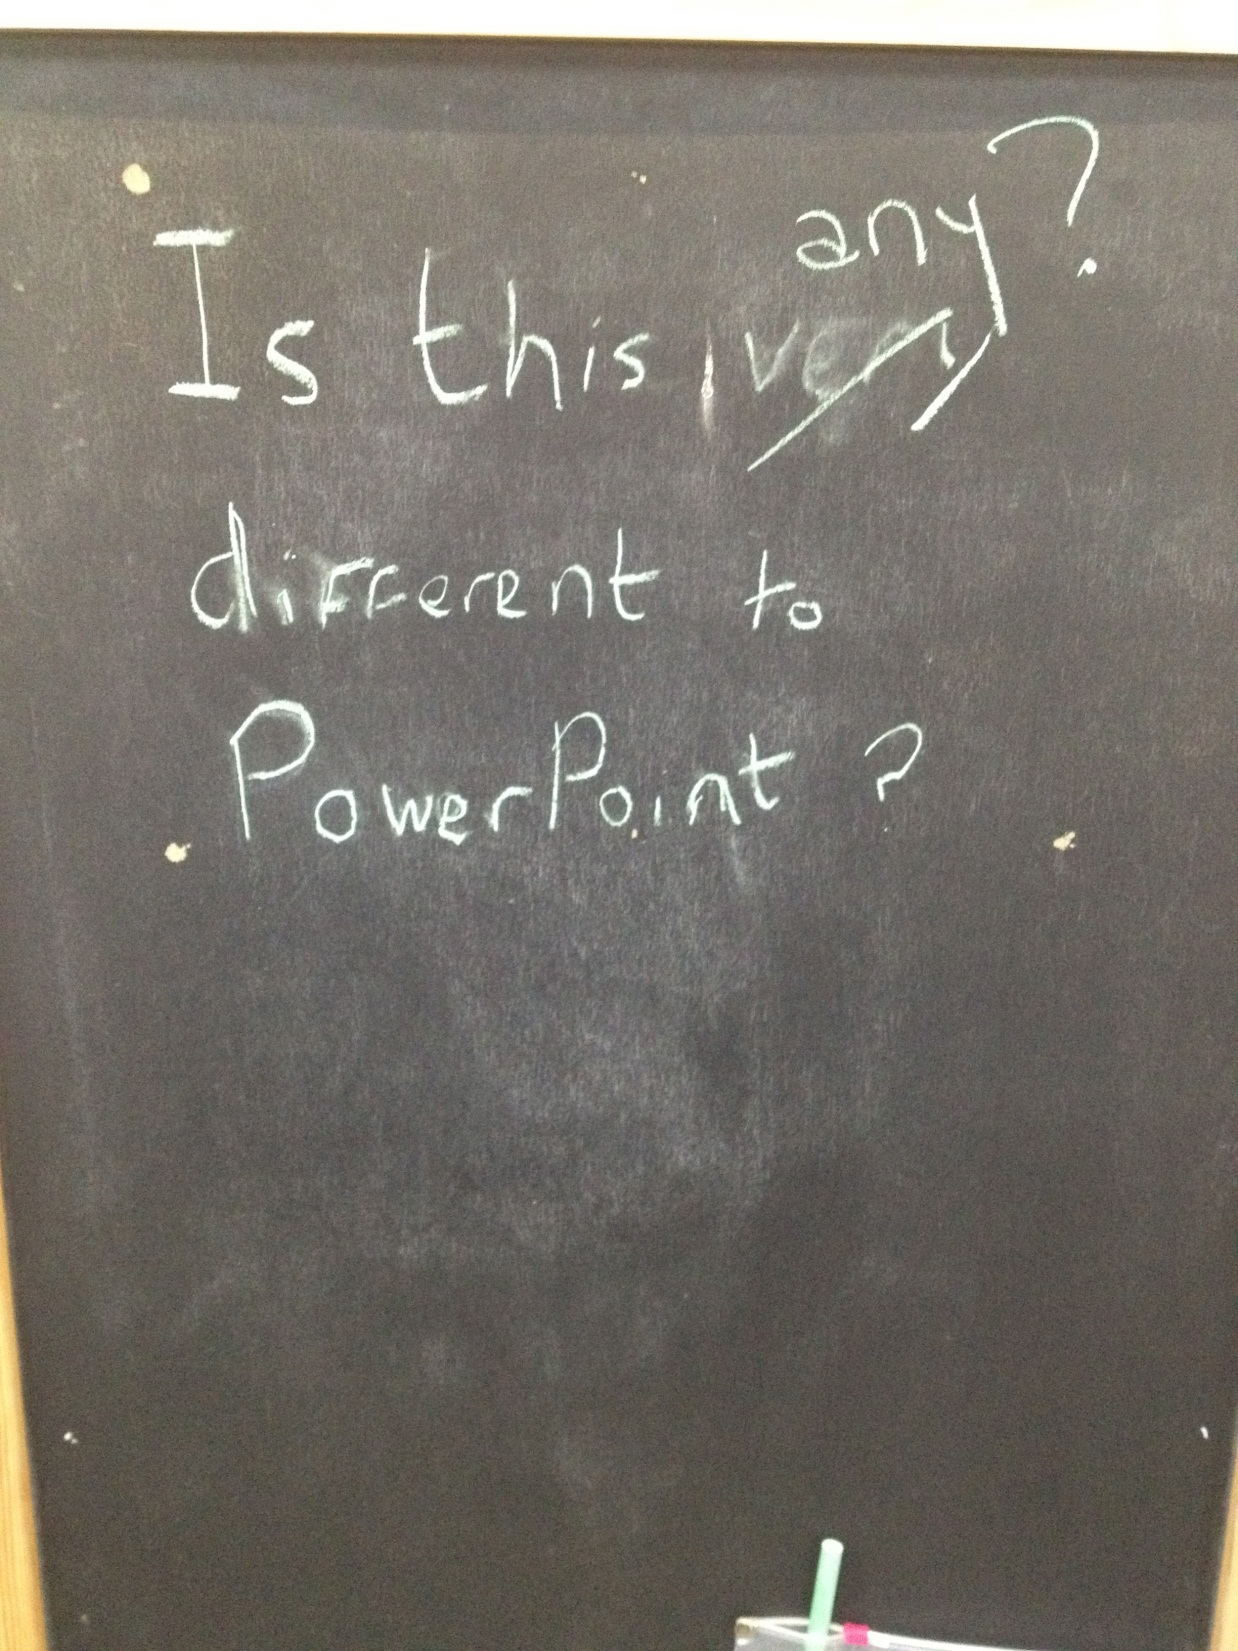 any?
Is this very
different to
PowerPoint?